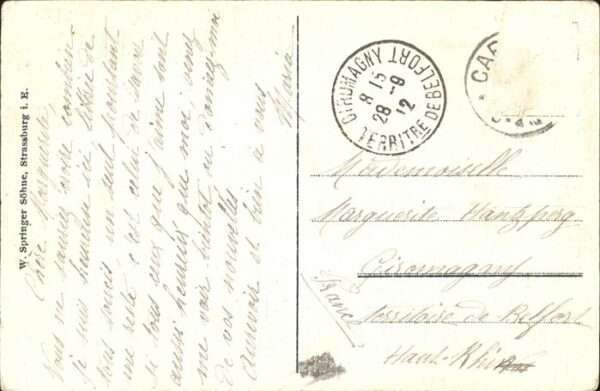 W. Springer Söhne, Strassburg i. E.
Chère Marguerite,
Vous ne saurez croire combien
je suis heureuse ici libre de
tous soucis un seul pourtant
me reste c'est celui de savoir
si tous ceux que j'aime sont
aussi heureux que moi venez
me voir bientôt ou donnez-moi
de vos nouvelles
Aurevoir et bien à vous
Maria
GIROMAGNY
8 15
28 -9
12
TERRITRE DE BELFORT
CA
Mademoiselle
Marguerite Hantzperg
Giromagny
Territoire de Belfort
Haut-Rhin
France